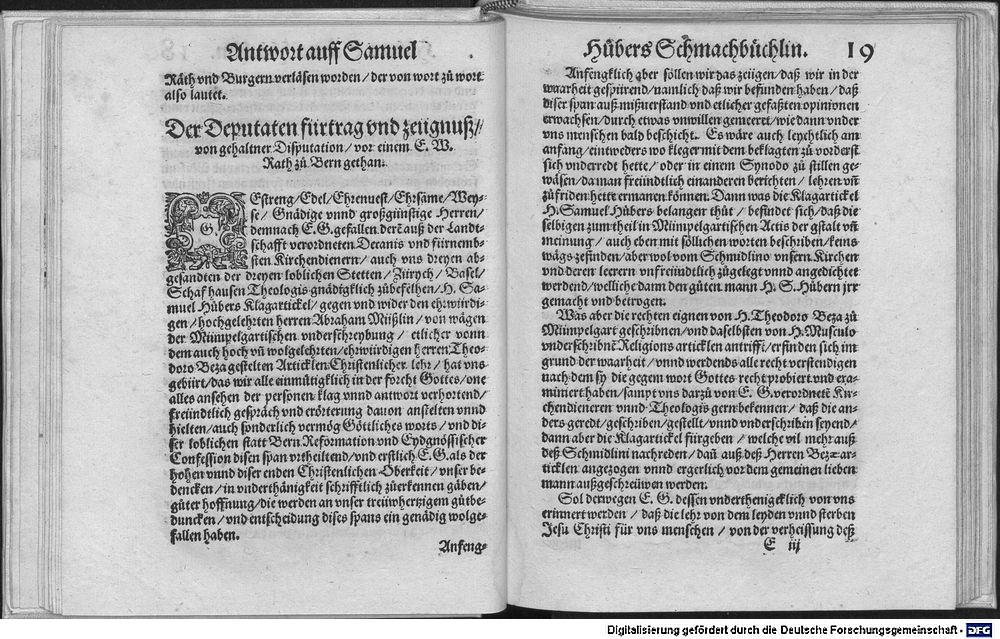 Antwort auff Samuel
Räth vnd Burgern verläsen worden / der von wort zů wort
also lautet.
Der Deputaten fürtrag vnd zeügnuß /
von gehaltner Disputation / vor einem E. W.
Rath zů Bern gethan.
GEstreng / Edel / Ehrenuest / Ehrsame / Wey-
se / Gnädige vnnd großgünstige Herren /
demnach E. G. gefallen derē auß der Landt-
schafft verordneten Decanis vnd fürnemb-
sten Kirchendienern / auch vns dreyen ab-
gesandten der dreyen loblichen Stetten / Zürych / Basel /
Schafhausen Theologis gnädigklich zůbefelhen / H. Sa-
muel Hůbers Klagartickel / gegen vnd wider den ehrwürdi-
gen / hochgelehrten herren Abraham Müßlin / von wägen
der Mümpelgartischen vnderschreybung / etlicher vonn
dem auch hoch vñ wolgelehrten / ehrwürdigen herren Theo-
doro Beza gestelten Articklen Christenlicher lehr / hat vns
gebürt / das wir alle einmütigklich in der forcht Gottes / one
alles ansehen der personen klag vnnd antwort verhortend /
freündtlich gespräch vnd erörterung dauon anstelten vnnd
hielten / auch sonderlich vermög Göttliches worts / vnd di-
ser loblichen statt Bern Reformation vnd Eydgnössischer
Confession disen span vrtheiltend / vnd erstlich E. G. als der
hohen vnnd diser enden Christenlichen Oberkeit / vnser be-
dencken / in vnderthänigkeit schrifftlich zůerkennen gäben /
gůter hoffnung / die werden an vnser treüwhertzigem gůtbe-
duncken / vnd entscheidung dises spans ein genädig wolge-
fallen haben.
Anfeng-
Hůbers Schmachbüchlin. 19
Anfengklich aber söllen wir das zeügen / daß wir in der
waarheit gespürend / namlich daß wir befunden haben / daß
diser span auß mißuerstand vnd etlicher gefaßten opinionen
erwachsen / durch etwas vnwillen gemeeret / wie dann vnder
vns menschen bald beschicht. Es wäre auch leychtlich am
anfang / eintweders wo kleger mit dem beklagten zů vorderst
sich vnderredt hette / oder in einem Synodo zů stillen ge-
wäsen / da man freündtlich einanderen berichten / lehren vñ
zůfriden hette ermanen können. Dann was die Klagartickel
H. Samuel Hůbers belangen thůt / befindet sich / daß die
selbigen zum theil in Mümpelgartischen Actis der gstalt vñ
meinung / auch eben mit söllichen worten beschriben / keins
wägs zefinden / aber wol vom Schmidlino vnsern Kirchen
vnd deren leerern vnfreündtlich zůgelegt vnnd angedichtet
werdend / welliche dann den gůten mann H. S. Hůbern jrr
gemacht vnd betrogen.
Was aber die rechten eignen von H. Theodoro Beza zů
Mümpelgart geschribnen / vnd daselbsten von H. Musculo
vnderschribnē Religions articklen antrifft / erfinden sich im
grund der waarheit / vnnd werdends alle recht verstendigen
nach dem sy die gegem wort Gottes recht probiert vnd exa-
miniert haben / sampt vns darzů von E. G. verordnetē Kir-
chendieneren vnnd Theologis gern bekennen / daß die an-
ders geredt / geschriben / gestellt / vnnd vnderschriben seyend /
dann aber die Klagartickel fürgeben / welche vil mehr auß
deß Schmidlini nachreden / dañ auß deß Herren Bezæ ar-
ticklen angezogen vnnd ergerlich vor dem gemeinen lieben
mann außgeschreüwen werden.
Sol derwegen E. G. dessen vnderthenigcklich von vns
erinnert werden / daß die lehr von dem leyden vnnd sterben
Jesu Christi für vns menschen / von der verheissung deß
E iij
Digitalisierung gefördert durch die Deutsche Forschungsgemeinschaft - DFG